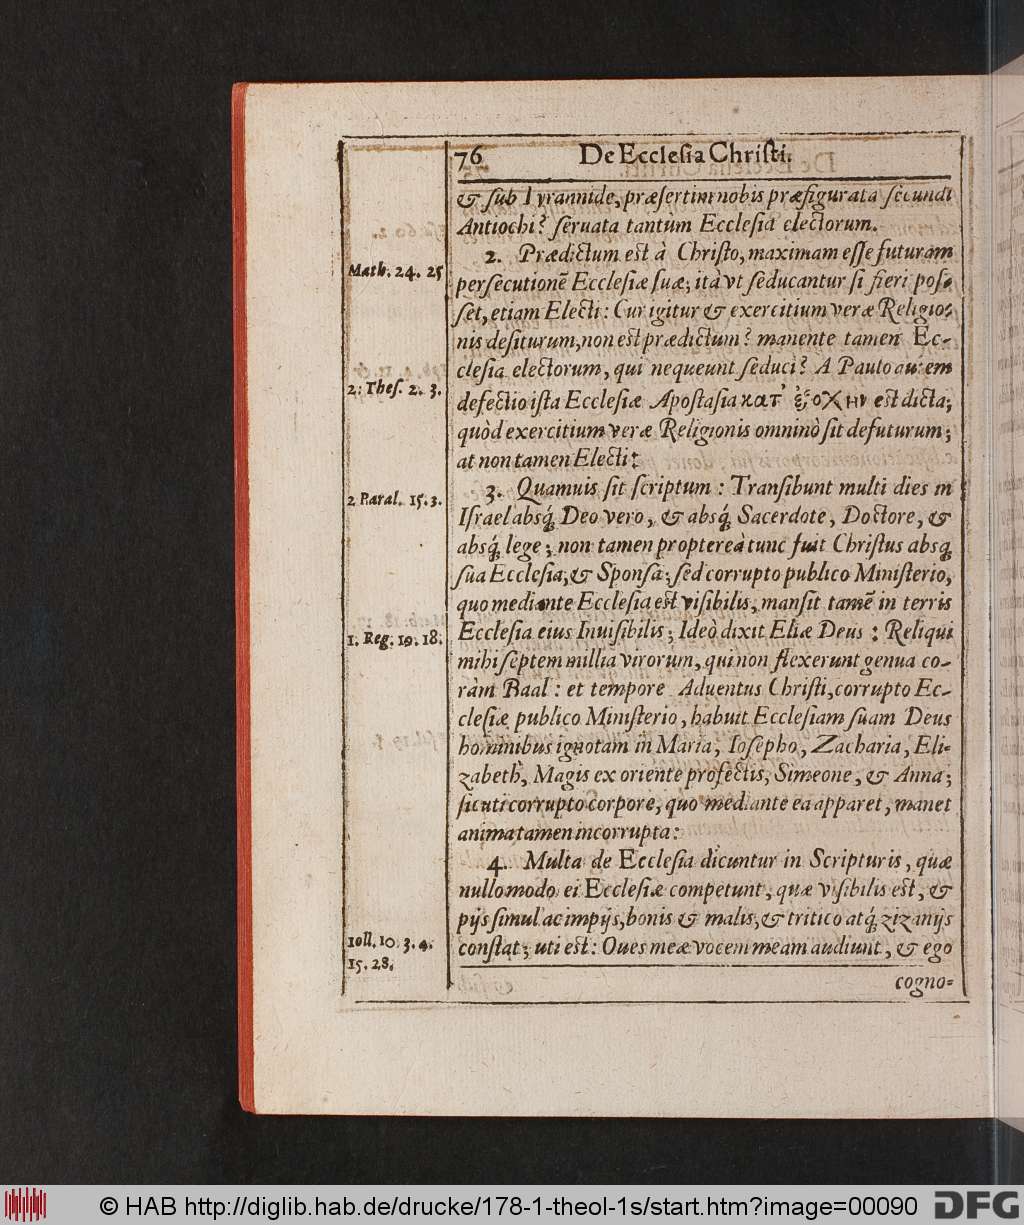 76 De Ecclesia Christi.
& sub Tyrannide, præsertim nobis præfigurata secundi
Antiochi? seruata tantùm Ecclesia electorum.
2. Prædictum est à Christo, maximam esse futuram
Math. 24. 25
persecutionẽ Ecclesiæ suæ; ità vt seducantur si fieri pos-
set, etiam Electi: Cur igitur & exercitium veræ Religio-
nis desiturum, non est prædictum? manente tamen Ec-
clesia electorum, qui nequeunt seduci? A Paulo autem
2. Thes. 2. 3.
defectio ista Ecclesiæ Apostasia κατ' ἐξοχην est dicta;
quòd exercitium veræ Religionis omninò sit defuturum;
at non tamen Electi:
3. Quamuis sit scriptum: Transibunt multi dies in
2 Paral. 15. 3.
Israel absq́ Deo vero, & absq́ Sacerdote, Doctore, &
absq́ lege; non tamen proptereà tunc fuit Christus absq́
sua Ecclesia, & Sponsa; sed corrupto publico Ministerio,
quo mediante Ecclesia est visibilis, mansit tamẽ in terris
Ecclesia eius Inuisibilis; Ideò dixit Eliæ Deus: Reliqui
1. Reg. 19. 18.
mihi septem millia virorum, qui non flexerunt genua co-
ràm Baal: et tempore Aduentus Christi, corrupto Ec-
clesiæ publico Ministerio, habuit Ecclesiam suam Deus
hominibus ignotam in Maria, Iosepho, Zacharia, Eli-
zabeth, Magis ex oriente profectis, Simeone, & Anna;
sicuti corrupto corpore, quo mediante ea apparet, manet
anima tamen incorrupta:
4. Multa de Ecclesia dicuntur in Scripturis, quæ
nullo modo ei Ecclesiæ competunt, quæ visibilis est, &
pijs simul ac impijs, bonis & malis, & tritico atq́ zizanijs
Ioh. 10. 3. 4.
constat; uti est: Oues meæ vocem meam audiunt, & ego
15. 28.
cogno-
© HAB http://diglib.hab.de/drucke/178-1-theol-1s/start.htm?image=00090 DFG